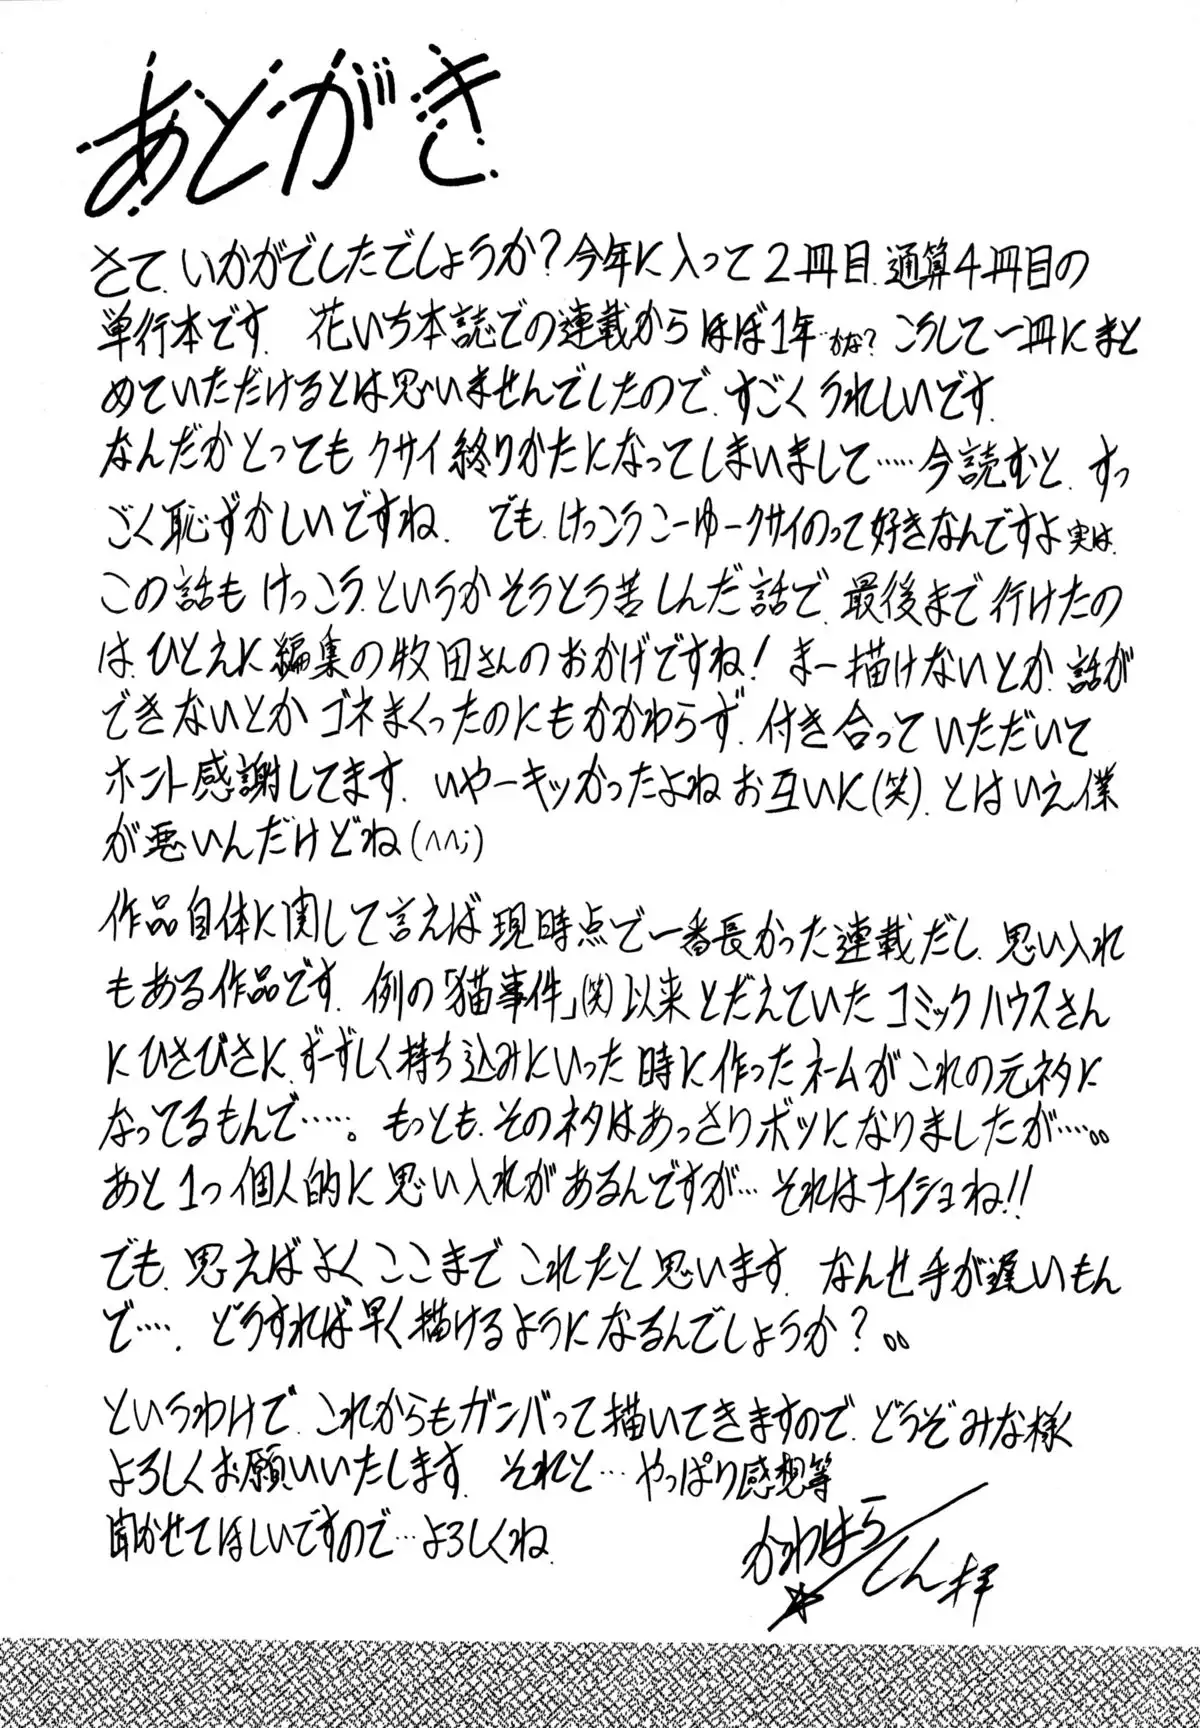 あとがき
さて、いかがでしたでしょうか?今年に入って2冊目、通算4冊目の
単行本です。花いち本誌での連載からほぼ1年かな?こうして一冊にまと
めていただけるとは思いませんでしたので、すごくうれしいです。
なんだかとってもクサイ終りかたになってしまいまして……今読むと、すっ
ごく恥ずかしいですね。でも、けっこうこーゆークサイのって好きなんですよ実は。
この話もけっこう、というかそうとう苦しんだ話で、最後まで行けたの
は、ひとえに編集の牧田さんのおかげですね!まー描けないとか、話が
できないとかゴネまくったのにもかかわらず、付き合っていただいて
ホント感謝してます。いやーキッかったよねお互いに(笑)。とはいえ僕
が悪いんだけどね(^^;)
作品自体に関して言えば現時点で一番長かった連載だし、思い入れ
もある作品です。例の「猫事件」(笑)以来とだえていたコミックハウスさん
にひさびさに、ずーずしく持ち込みにいった時に作ったネームがこれの元ネタに
なってるもんで……。もっとも、そのネタはあっさりボツになりましたが……。。
あと1つ個人的に思い入れがあるんですが…それはナイショね!!
でも、思えばよくここまでこれたと思います。なんせ手が遅いもん
で……。どうすれば早く描けるようになるんでしょうか?。。
というわけで、これからもガンバって描いてきますので、どうぞみな様
よろしくお願いいたします。それと…やっぱり感想等
聞かせてほしいですので…よろしくね。
かわはらしん拝